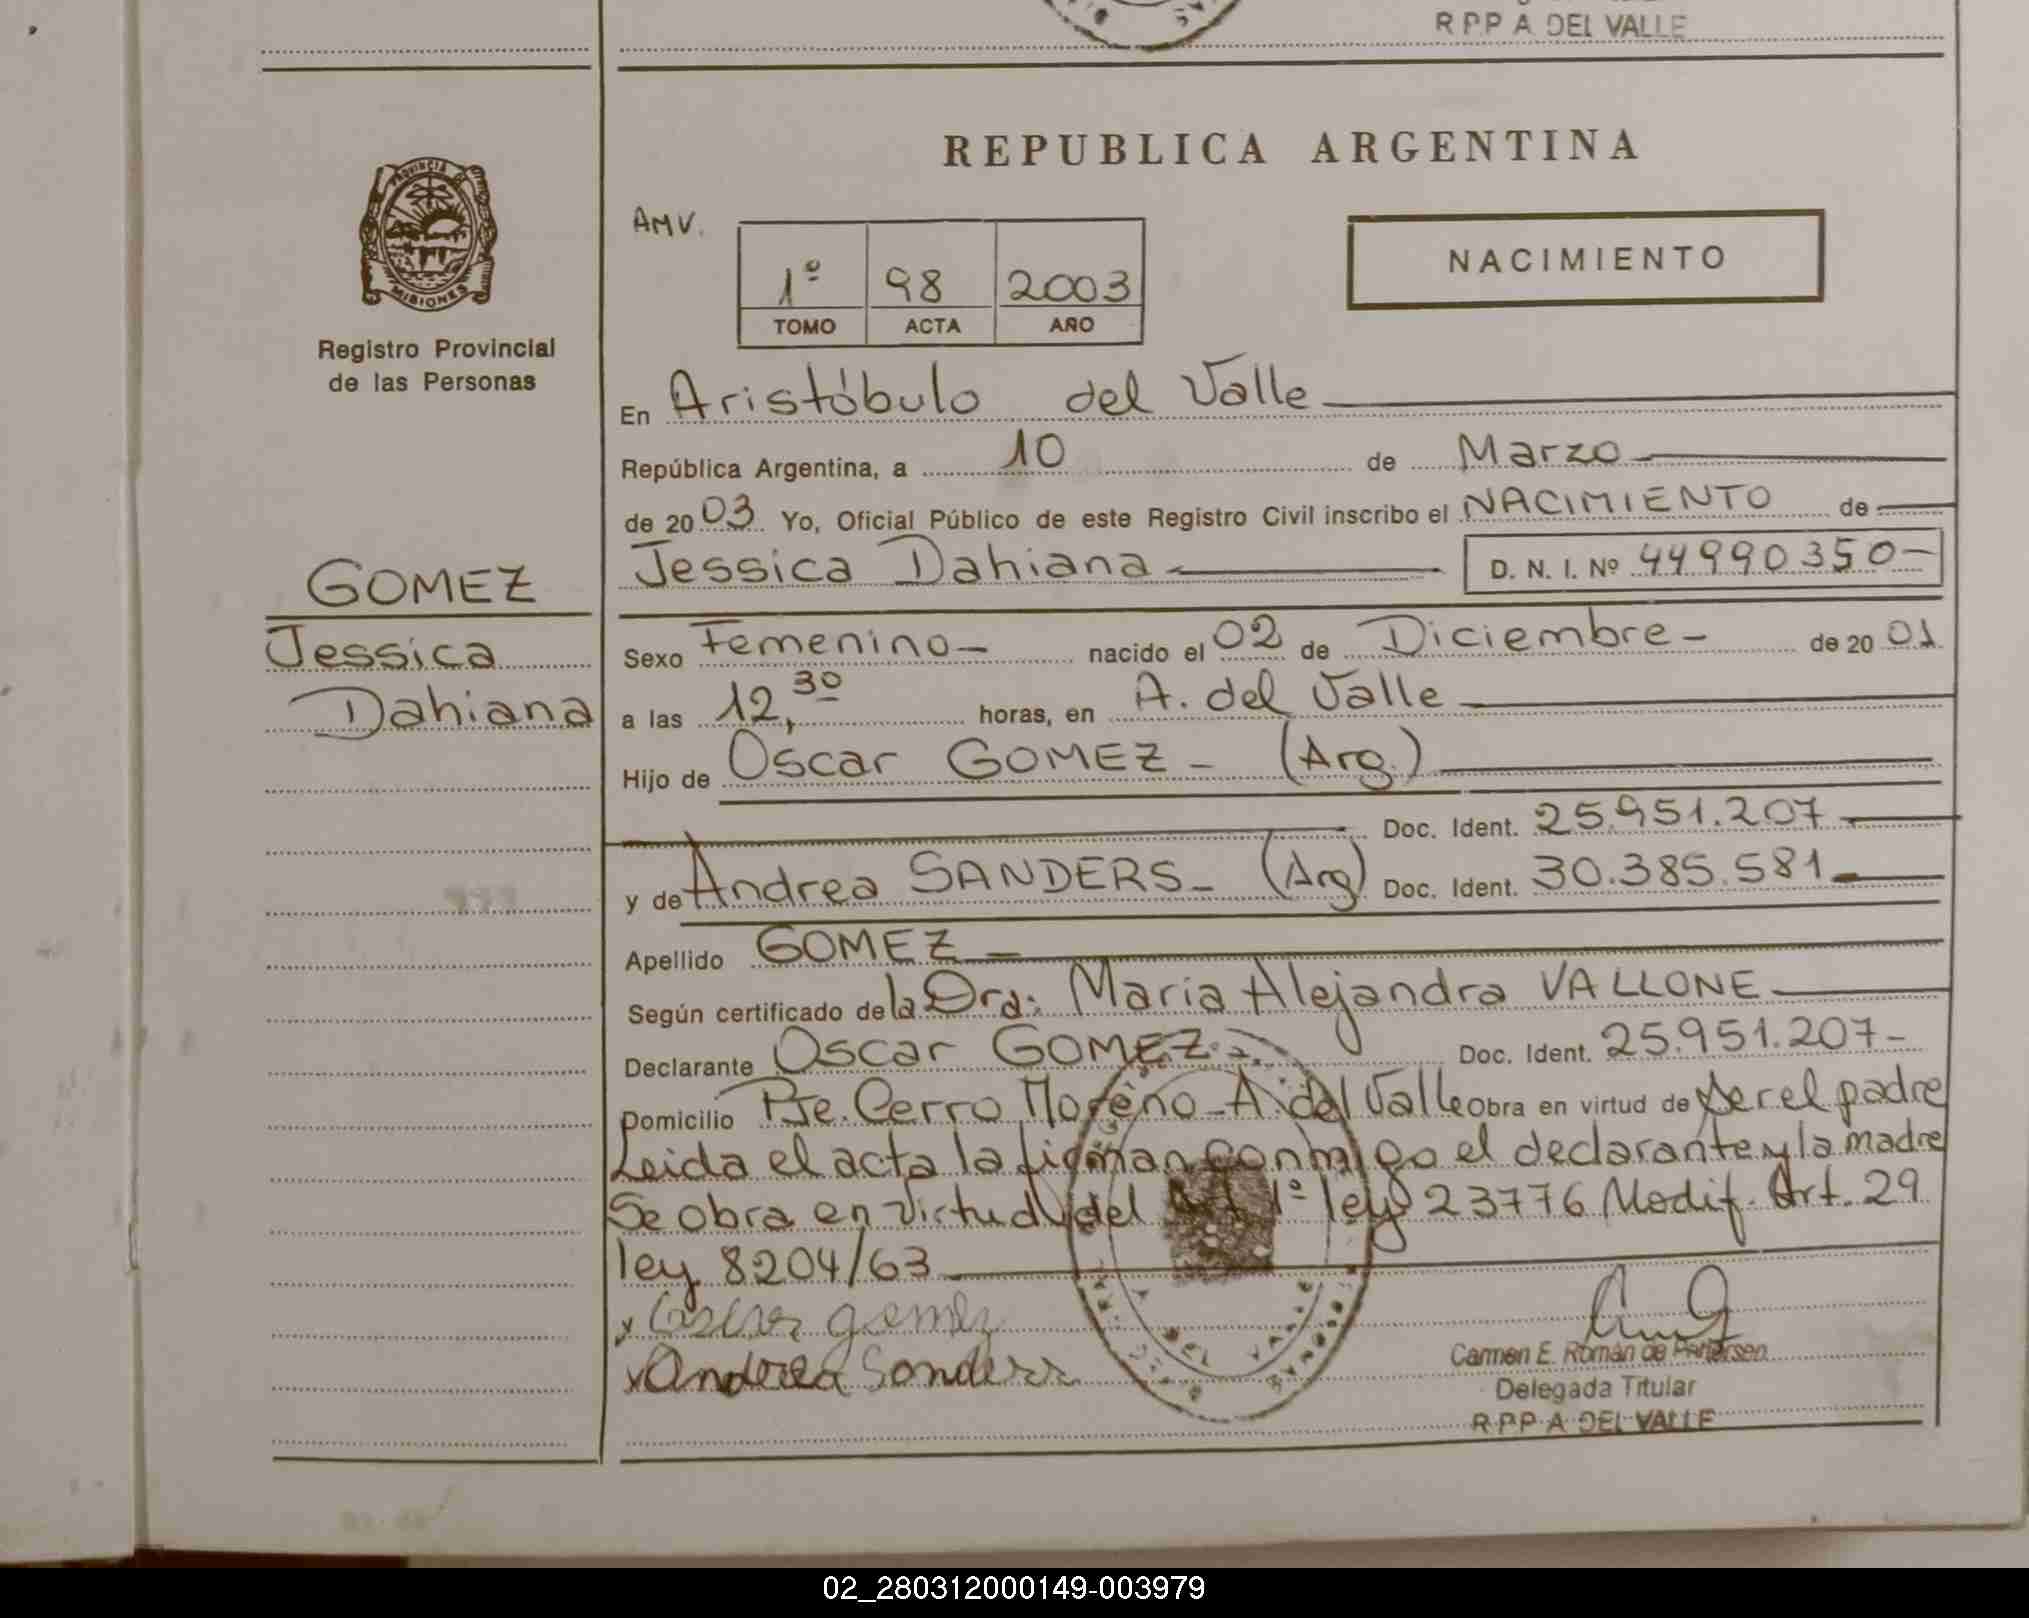 R P P A DEL VALLE
PROVINCIA DE
MISIONES
Registro Provincial
de las Personas
GOMEZ
Jessica
Dahiana
REPUBLICA ARGENTINA
AMV.
1º 98 2003
TOMO ACTA AÑO
NACIMIENTO
En Aristóbulo del Valle
República Argentina, a 10 de Marzo
de 20 03 Yo, Oficial Público de este Registro Civil inscribo el NACIMIENTO de
Jessica Dahiana D. N. I. Nº 44990350-
Sexo Femenino- nacido el 02 de Diciembre- de 20 01
a las 12,30 horas, en A. del Valle
Hijo de Oscar GOMEZ - (Arg.)
Doc. Ident. 25.951.207
y de Andrea SANDERS- (Arg) Doc. Ident. 30.385.581
Apellido GOMEZ
Según certificado de la Dra: María Alejandra VALLONE
Declarante Oscar GOMEZ- Doc. Ident. 25.951.207-
Domicilio Pje. Cerro Moreno-A. del Valle Obra en virtud de ser el padre
Leida el acta la firman conmigo el declarante y la madre
Se obra en virtud del Art 1º ley 23776 Modif. Art. 29
ley 8204/63
x Oscar gomez
x Andrea Sanders
Carmen E. Román de
Delegada Titular
R.P.P. A DEL VALLE
02_280312000149-003979